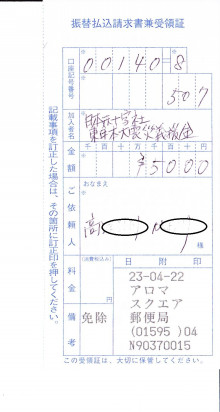 振替払込請求書兼受領証
口座記号番号
00140=8
507
加入者名
日本赤十字社
東日本大震災義援金
金額
千百十万千百十円
¥5000
ご依頼人
おなまえ
高
様
料金
(消費税込み)
円
備考
免除
日附印
23-04-22
アロマ
スクエア
郵便局
(01595 )04
N90370015
記載事項を訂正した場合は、その箇所に訂正印を押してください。
この受領証は、大切に保管してください。